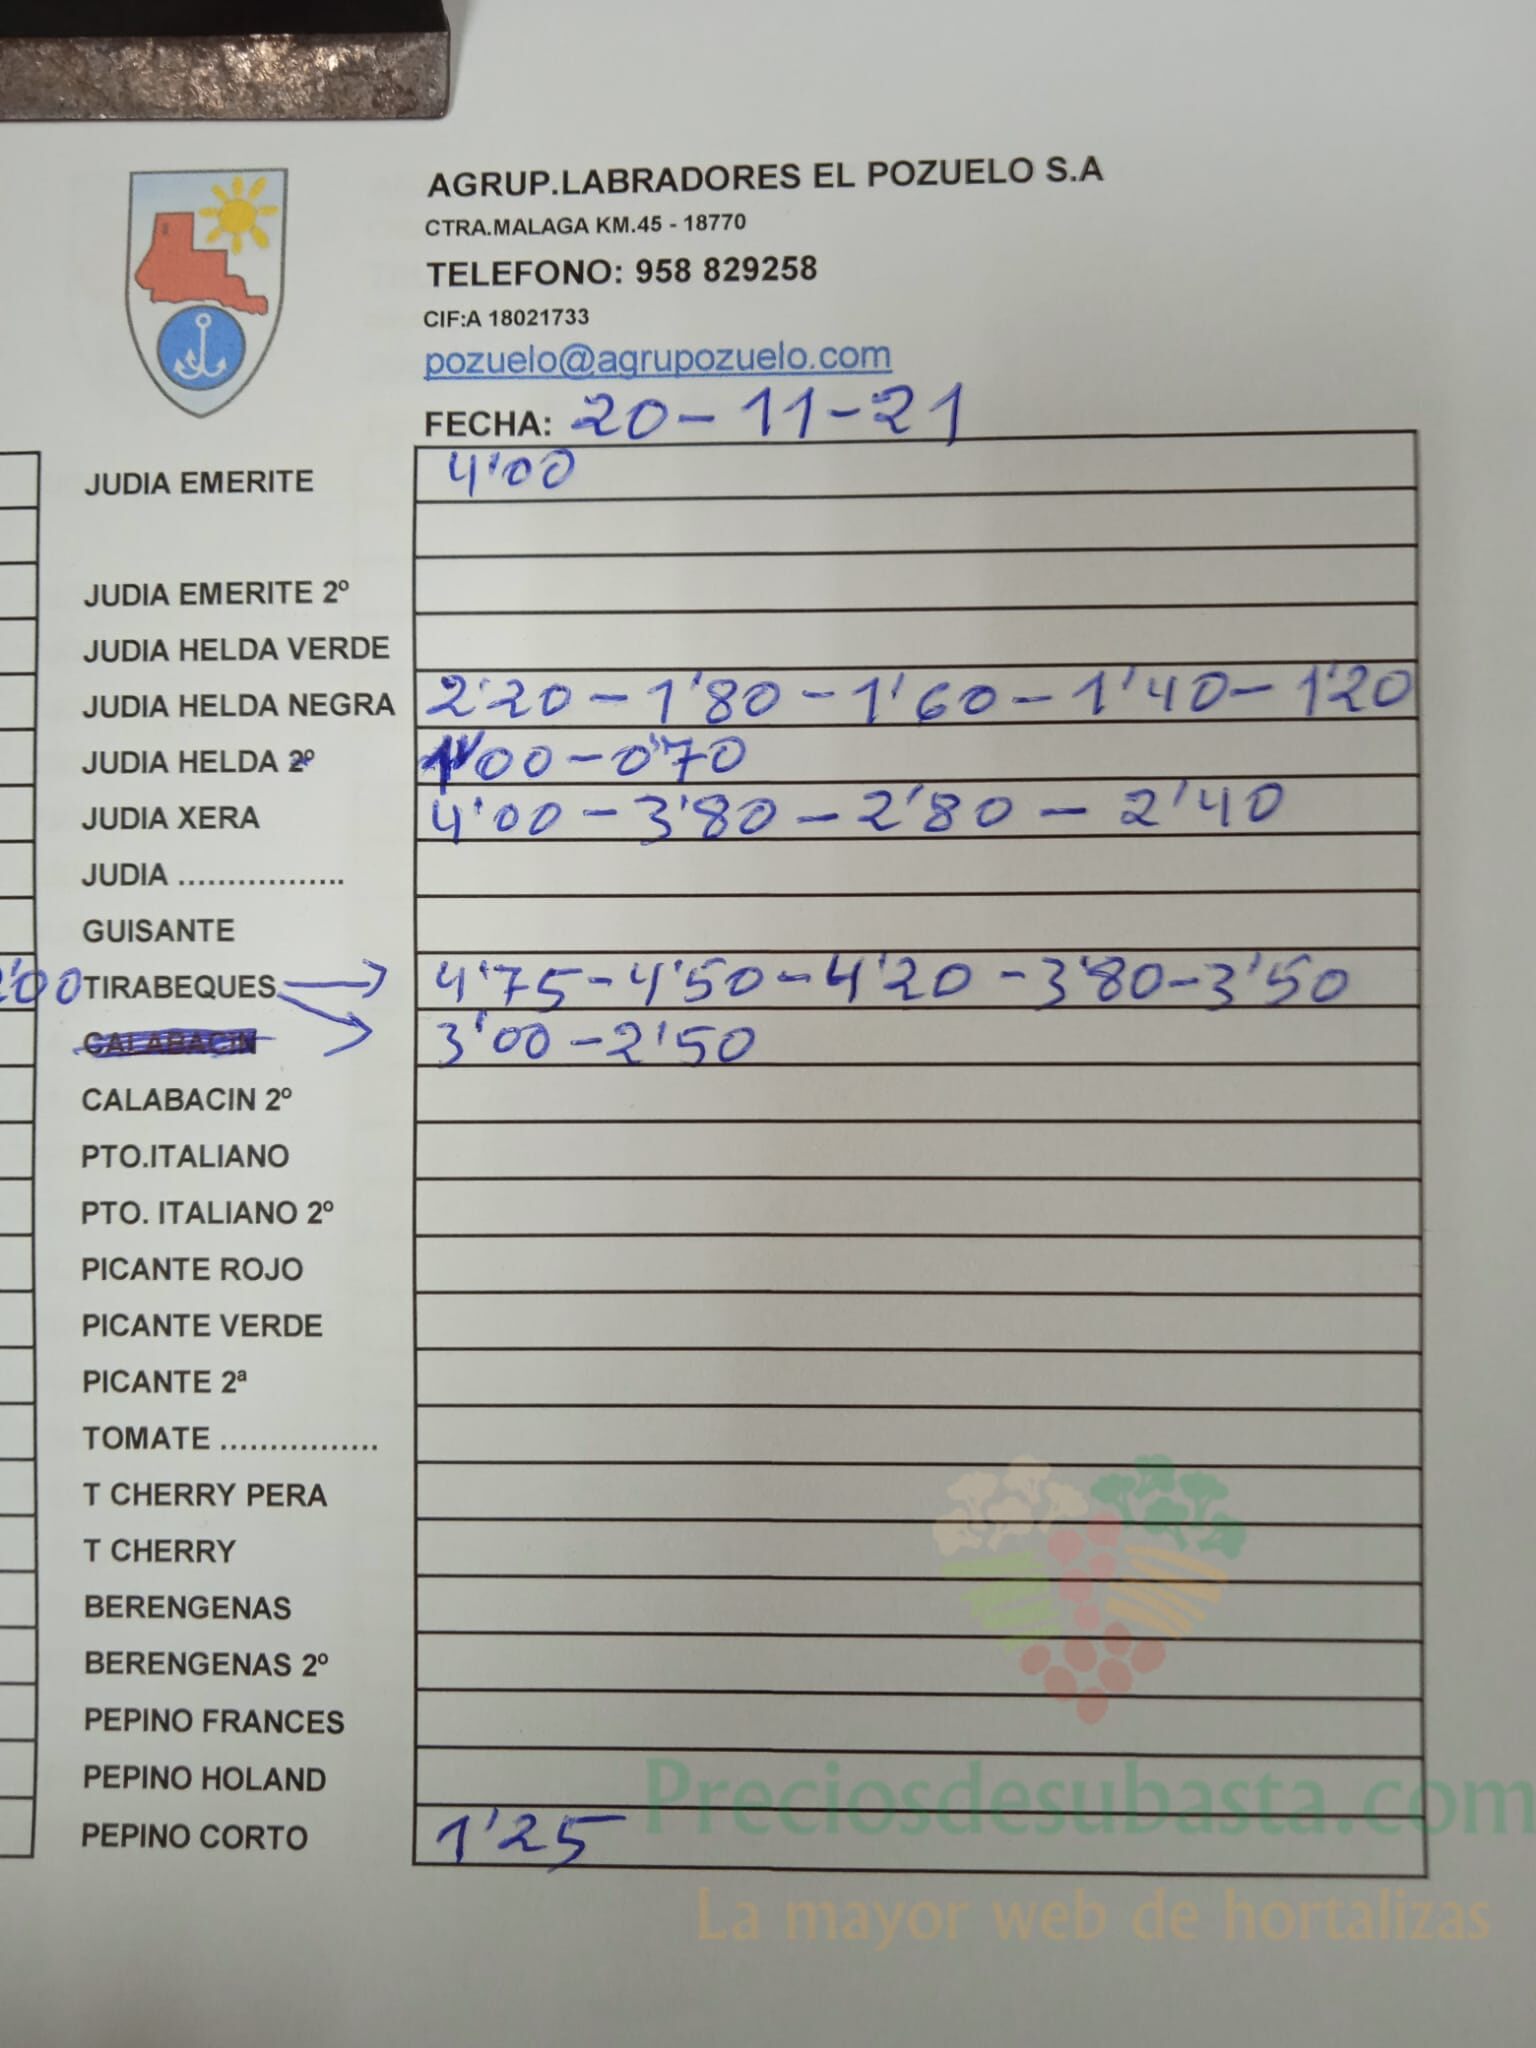 AGRUP.LABRADORES EL POZUELO S.A
CTRA.MALAGA KM.45 - 18770
TELEFONO: 958 829258
CIF:A 18021733
pozuelo@agrupozuelo.com
FECHA: 20-11-21
JUDIA EMERITE 4'00
JUDIA EMERITE 2º
JUDIA HELDA VERDE
JUDIA HELDA NEGRA 2'20-1'80-1'60-1'40-1'20
JUDIA HELDA 2º 1'00-0'70
JUDIA XERA 4'00-3'80-2'80-2'40
JUDIA .................
GUISANTE
TIRABEQUES 4'75-4'50-4'20-3'80-3'50
CALABACIN 3'00-2'50
CALABACIN 2º
PTO.ITALIANO
PTO. ITALIANO 2º
PICANTE ROJO
PICANTE VERDE
PICANTE 2ª
TOMATE ................
T CHERRY PERA
T CHERRY
BERENGENAS
BERENGENAS 2º
PEPINO FRANCES
PEPINO HOLAND
PEPINO CORTO 1'25
Preciosdesubasta.com
La mayor web de hortalizas